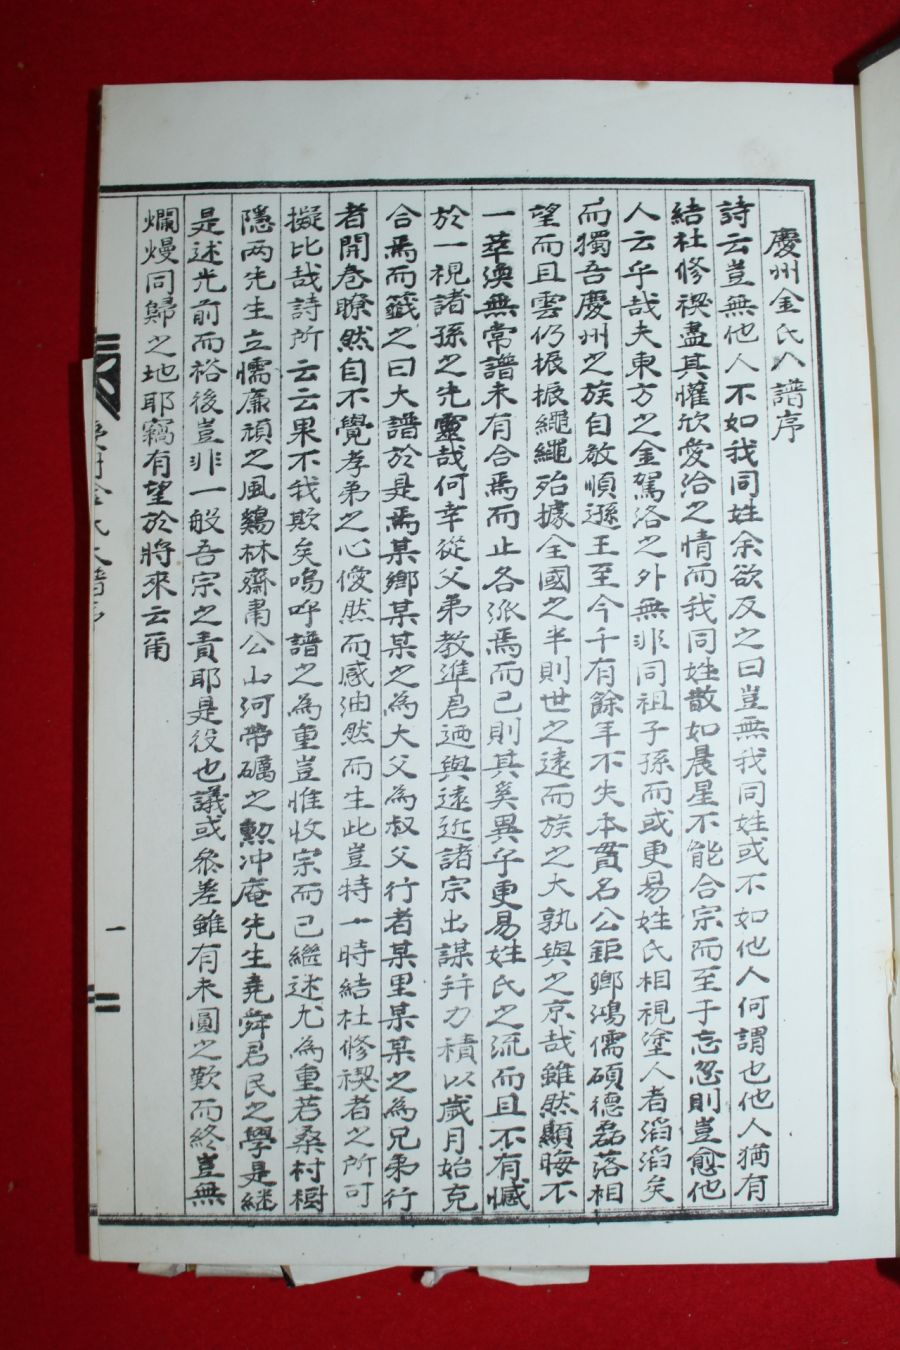 慶州金氏人譜序
詩云豈無他人不如我同姓余欲反之曰豈無我同姓或不如他人何謂也他人猶有
結社修禊盡其懽欣愛洽之情而我同姓散如晨星不能合宗而至于忘忽則豈愈他
人云乎哉夫東方之金駕洛之外無非同祖子孫而或更易姓氏相視塗人者滔滔矣
而獨吾慶州之族自敬順遜王至今千有餘年不失本貫名公鉅卿鴻儒碩德磊落相
望而且雲仍振振繩繩殆據全國之半則世之遠而族之大孰與之京哉雖然顯晦不
一萃渙無常譜未有合焉而止各派焉而已則其奚異乎更易姓氏之流而且不有憾
於一視諸孫之先靈哉何幸從父弟教進君廼與遠近諸宗出謀并力積以歲月始克
合焉而籤之曰大譜於是焉某鄉某某之為大父為叔父行者某里某某之為兄弟行
者開卷瞭然自不覺孝弟之心僾然而感油然而生此豈特一時結社修禊者之所可
擬比哉詩所云云果不我欺矣嗚呼譜之為重豈惟收宗而已繼述尤為重若桑村樹
隱两先生立懦廉頑之風鷄林齋肅公山河帶礪之勲冲庵先生堯舜君民之學是継
是述光前而裕後豈非一般吾宗之責耶是役也議或參差雖有未圓之歎而終豈無
爛熳同歸之地耶竊有望於將來云甭
金氏大譜序
一